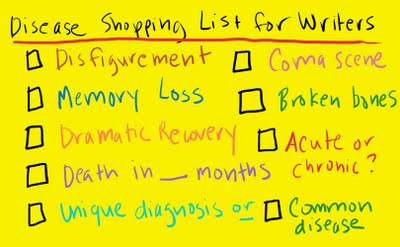 Disease Shopping List for Writers
Disfigurement
Coma scene
Memory Loss
Broken bones
Dramatic Recovery
Acute or
chronic?
Death in __ months
Unique diagnosis or
Common
disease